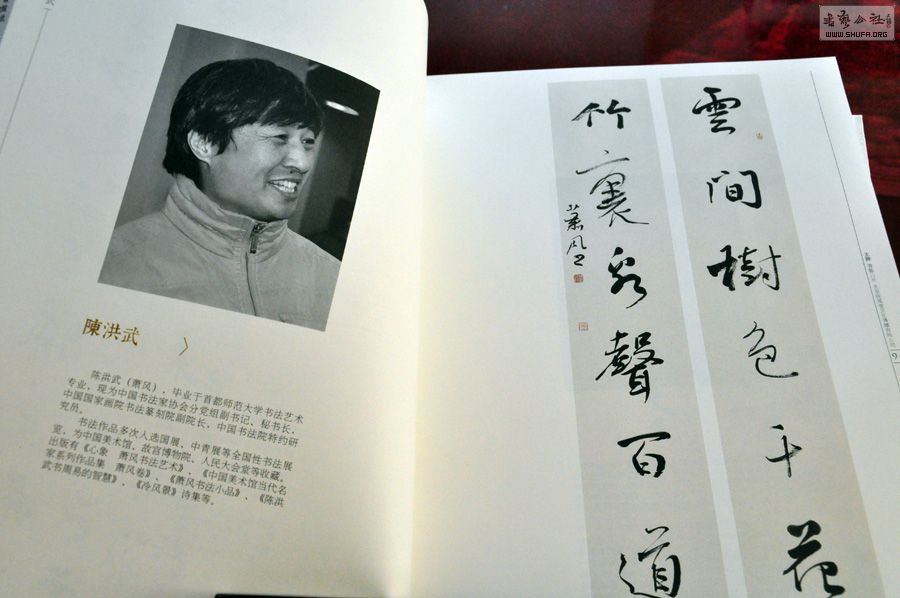 陳洪武
陈洪武（萧风），毕业于首都师范大学书法艺术
专业，现为中国书法家协会分党组副书记、秘书长，
中国国家画院书法篆刻院副院长，中国书法院特约研
究员。
书法作品多次入选国展、中青展等全国性书法展
览，为中国美术馆、故宫博物院、人民大会堂等收藏。
出版有《心象　萧风书法艺术》、《中国美术馆当代名
家系列作品集　萧风卷》、《萧风书法小品》、《陈洪
武书周易的智慧》、《冷风景》诗集等。
雲間樹色千花
竹裏泉聲百道
9
WWW.SHUFA.ORG